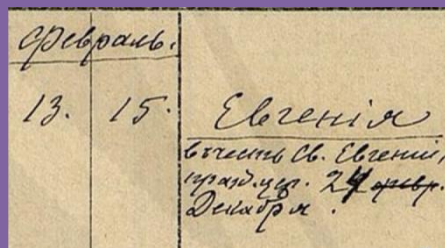 Февраль.
13. 15. Евгенія
въ честь Св. Евгеніи,
празд. цр. 24 февр.
Декабря.